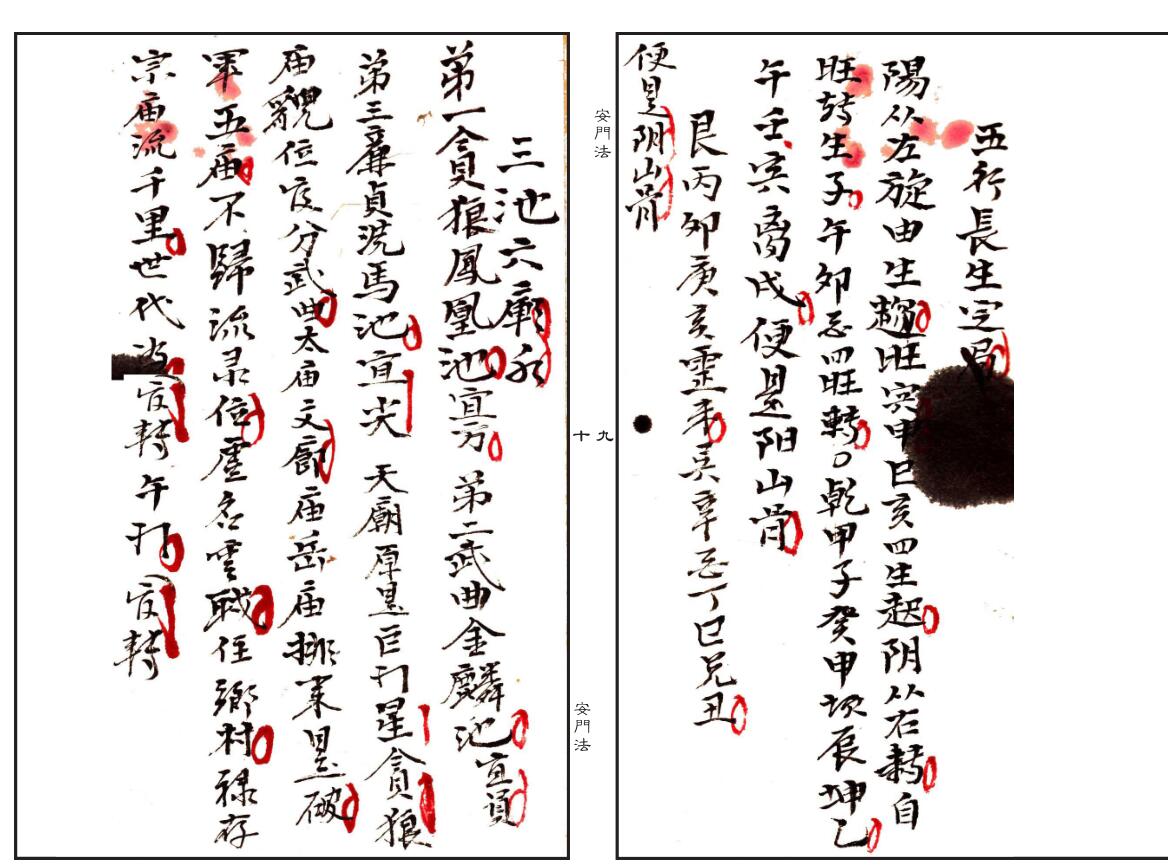 五行長生定局
陽从左旋由生趨旺寅申巳亥四生起阴从右轉自
旺转生子午卯忌四旺轉○乾甲子癸申坎辰坤乙
午壬寅离戌便是阳山骨
艮丙卯庚亥靈未巽辛忌丁巳兑丑
便是阴山骨
安門法
十九
安門法
三池六廟水
第一貪狼鳳凰池宜方 第二武曲金麟池宜須
第三廉貞洗馬池宜尖 天廟原是巨门星貪狼
庙位宜分武曲太庙文廟庙岳庙推来是破
軍五庙不歸流录位虚名雲职任鄉村禄存
宗庙流千里世代 官轉午门官轉